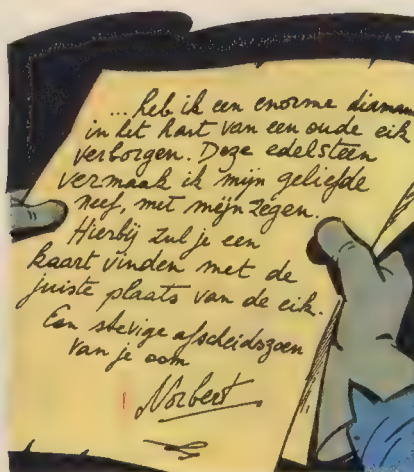 ... heb ik een enorme diaman
in het hart van een oude eik
verborgen. Deze edelsteen
vermaak ik mijn geliefde
neef, met mijn zegen.
Hierbij zul je een
kaart vinden met de
juiste plaats van de eik.
Een stevige afscheidszoen
van je oom
Norbert